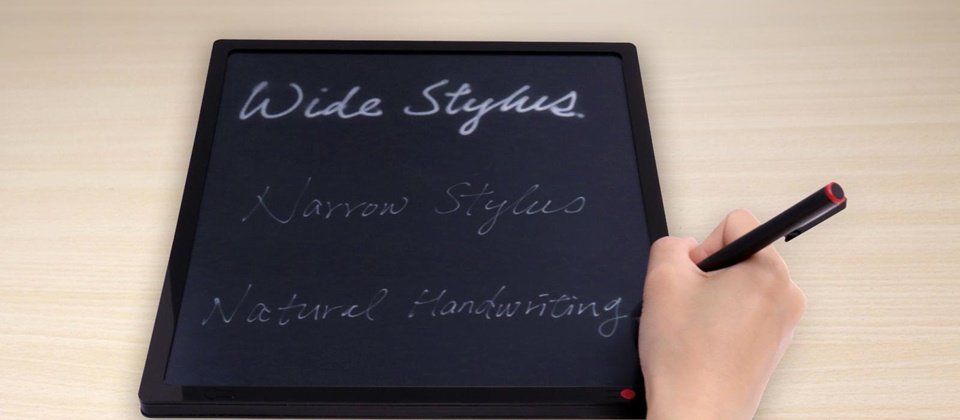 Wide Stylus
Narrow Stylus
Natural Handwriting